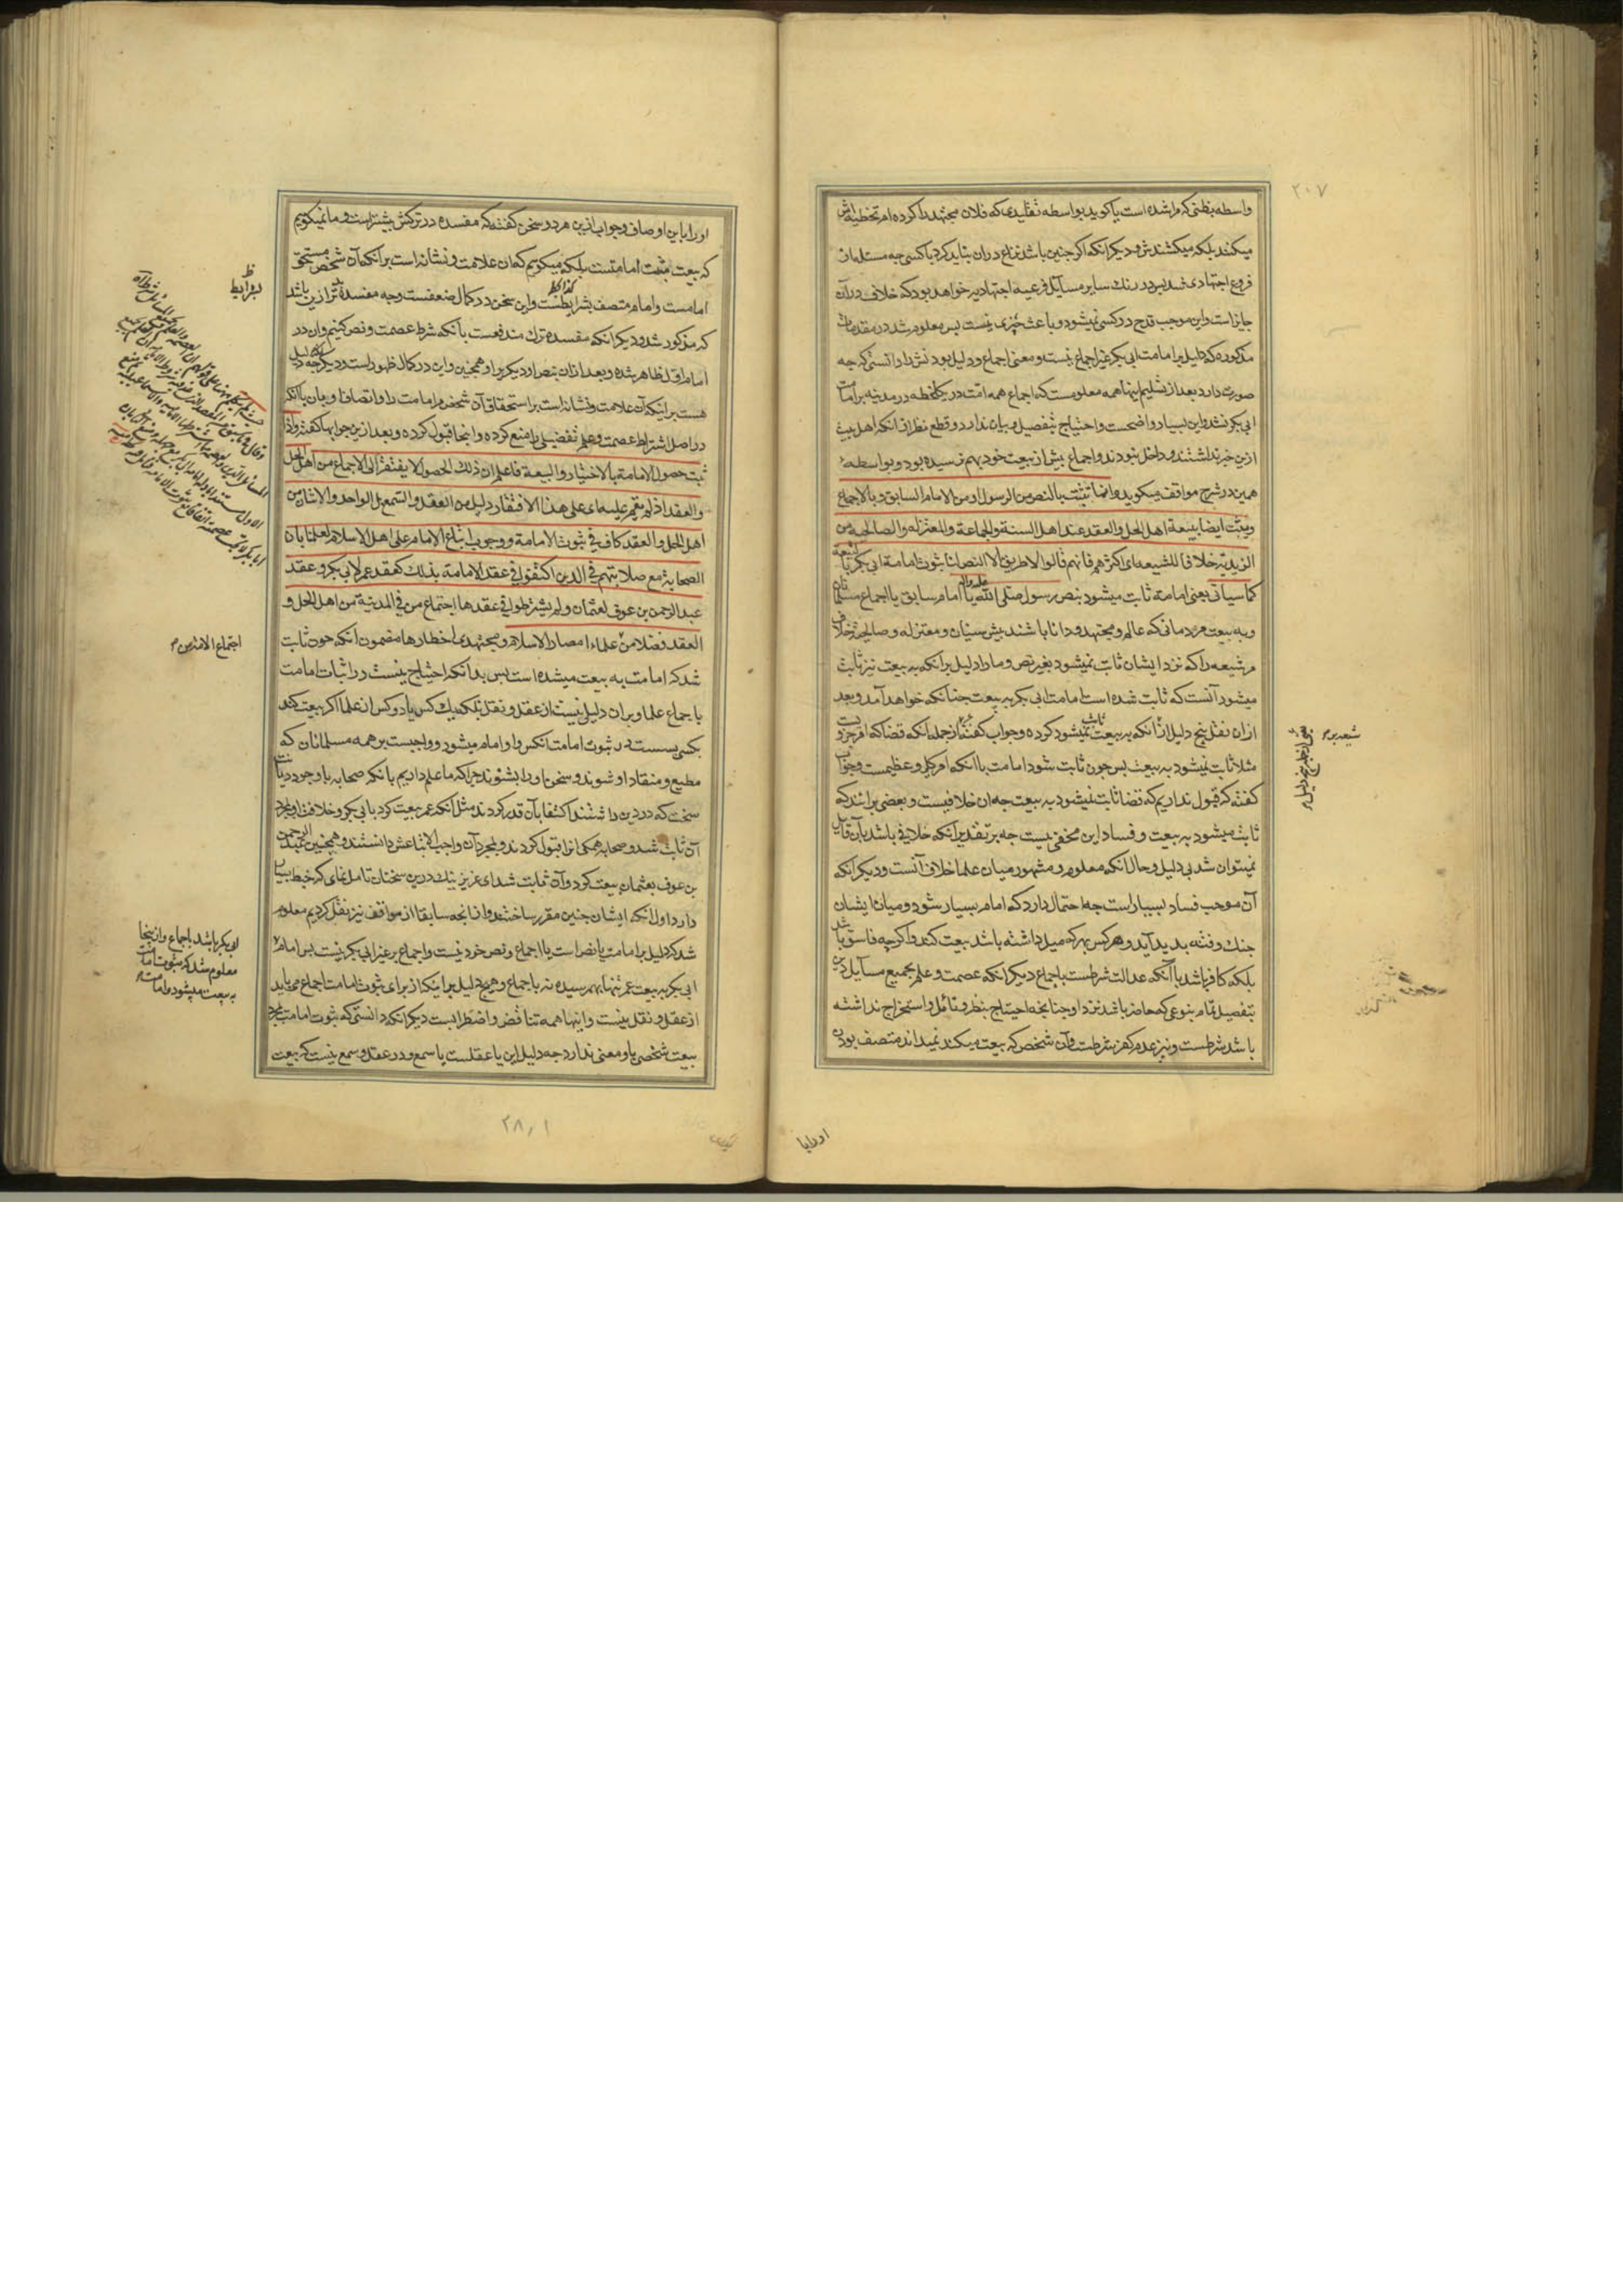 ۲۰۷
واسطه بظنی که مرا شده است یا کوید بواسطه تقلیدی که فلان مجتهد را کرده ام تخطیه اش
میکنند بلکه میکشندش و دیکر انکه اکر چنین باشد نزاع در ان نباید کرد با کسی چه مسئله از
فروع اجتهادی شد پس در رنک سایر مسایل فرعیه اجتهادیه خواهد بود که خلاف در آن
جایز است و این موجب قدح در کسی نمیشود و باعث چیزی نیست پس معلوم شد در مقدمات
مذکوره که دلیل بر امامت ابی بکر غیر اجماع نیست و معنی اجماع و دلیل بودنش را دانستی که چه
صورت دارد بعد از تسلیم اینها همه معلومست که اجماع همه امت در یک لحظه در مدینه بر امامت
ابی بکر نشد و این بسیار واضحست و احتیاج بتفصیل و بیان ندارد و قطع نظر از انکه اهل بیت
ازین خبر نداشتند و داخل نبودند و اجماع پیش از بیعت خود بهم نرسیده بود و بواسطه
همین در شرح مواقف میکوید و انما تثبت بالنص من الرسول و من الامام السابق و بالاجماع
ویثبت ایضا ببیعة اهل الحل والعقد عند اهل السنة والجماعة والمعتزله والصالحیه من
الزیدیه خلافا للشیعه ای اکثرهم فانهم قالوا لا طریق الا النص لنا ثبوت امامة ابی بکر بالبیعة
کما سیاتی یعنی امامت ثابت میشود بنص رسول صلی الله علیه و اله یا امام سابق یا اجماع مسلمانان
و به بیعت مردمانی که عالم و مجتهد و دانا باشند پیش سنیان و معتزله و صالحیه خلاف
مر شیعه را که نزد ایشان ثابت نمیشود بغیر نص و ما را دلیل بر انکه به بیعت نیز ثابت
میشود آنست که ثابت شده است امامت ابی بکر به بیعت چنانکه خواهد آمد و بعد
ازان نقل پنج دلیل از انکه به بیعت ثابت نمیشود کرده و جواب کفته از جمله انکه قضا که امر جزویست
مثلا ثابت نمیشود به بیعت پس چون ثابت شود امامت با انکه امر کلی و عظیمست و جواب
کفته که قبول نداریم که قضا ثابت نمیشود به بیعت چه ان خلافیست و بعضی برانند که
ثابت میشود به بیعت و فساد این مخفی نیست چه بر تقدیر انکه خلافی باشد بآن قایل
نمیتوان شد بی دلیل و حال انکه معلوم و مشهور میان علما خلاف آنست و دیکر انکه
آن موجب فساد بسیار است چه احتمال دارد که امام بسیار شود و میان ایشان
جنک و فتنه پدید آید و هر کس بهر که میل داشته باشد بیعت کند و اکر چه فاسق باشد
بلکه کافر باشد با آنکه عدالت شرطست باجماع دیکر انکه عصمت و علم بجمیع مسایل دین
بتفصیل تمام بنوعی که حاضر باشد نزد او چنانچه احتیاج بنظر و تامل و استخراج نداشته
باشد شرطست و نیز عدم کفر شرطست و آن شخص که بیعت میکند نمیداند متصف بودن
شیعه بر
اورا با
اورا با این اوصاف و جواب ازین هر دو سخن کفته که مفسده در ترکش بیشتر است و ما نمیکوییم
که بیعت مثبت امامتست بلکه میکوییم که آن علامت و نشانه است بر انکه آن شخص مستحق
امامست و امام متصف بشرایطست و این سخن در کمال ضعفست و چه مفسده بدتر ازین باشد
که مذکور شد و دیکر انکه مفسده ترک مندفعست بآنکه شرط عصمت و نص کنیم و ان در
امام اول ظاهر شده و بعد ازان بنص او دیکر برا و همچنین و این در کمال ظهور است و دیکر چه دلیل
هست بر اینکه آن علامت و نشانه است بر استحقاق آن شخص مر امامت را و اتصاف او بآن با انکه
در اصل اشتراط عصمت و علم تفضیلی را منع کرده و اینجا قبول کرده و بعد ازین جوابها کفته و اذا
ثبت حصول الامامة بالاختیار والبیعة فاعلم ان ذلک الحصول لا یفتقر الی الاجماع من اهل الحل
والعقد اذ لم یقم علیه ای علی هذا الافتقار دلیل من العقل والسمع بل الواحد والاثنان من
اهل الحل والعقد کاف فی ثبوت الامامة و وجوب اتباع الامام علی اهل الاسلام لعلمنا بان
الصحابة مع صلابتهم فی الدین اکتفوا فی عقد الامامة بذلک کعقد عمر لابی بکر و عقد
عبدالرحمن بن عوف لعثمان و لم یشترطوا فی عقدها اجتماع من فی المدینة من اهل الحل و
العقد فضلا من علماء امصار الاسلام و مجتهدی اقطارها مضمون انکه چون ثابت
شد که امامت به بیعت میشده است پس بدانکه احتیاج نیست در اثبات امامت
باجماع علما و بران دلیلی نیست از عقل و نقل بلکه یک کس یا دو کس از علما اکر بیعت کند
بکسی بسست در ثبوت امامت انکس و او امام میشود و واجبست بر همه مسلمانان که
مطیع و منقاد او شوند و سخن او را بشنوند چرا که ما علم داریم بانکه صحابه با وجود دیانت
سخت که در دین داشتند اکتفا بآن قدر کردند مثل آنکه عمر بیعت کرد با ابی بکر و خلافت او بمجرد
آن ثابت شد و صحابه همکی انرا قبول کردند و بمجرد آن واجب الاتباعش دانستند و همچنین عبدالرحمن
بن عوف بعثمان بیعت کرد و آن ثابت شد ای عزیز نیک درین سخنان تامل نمای که خبط بسیار
دارد اول انکه ایشان چنین مقرر ساختند و از انچه سابقا از مواقف نیز نقل کردیم معلوم
شد که دلیل بر امامت یا نص است یا اجماع و نص خود نیست و اجماع بر غیر ابی بکر نیست پس امامت
ابی بکر به بیعت عمر تنها بهم رسیده نه باجماع و هیچ دلیل بر اینکه از برای ثبوت امامت اجماع می باید
از عقل و نقل نیست و اینها همه تناقض و اضطرابست دیکر انکه دانستی که ثبوت امامت بمجرد
بیعت شخصی با و معنی ندارد چه دلیل این یا عقلست یا سمع و در عقل و سمع نیست که بیعت
بشرایط
اجتماع الامة من
ابی بکر باشد باجماع و از اینجا
معلوم شد که ثبوت امامت
به بیعت میشود و امامت
۲۸۰۱